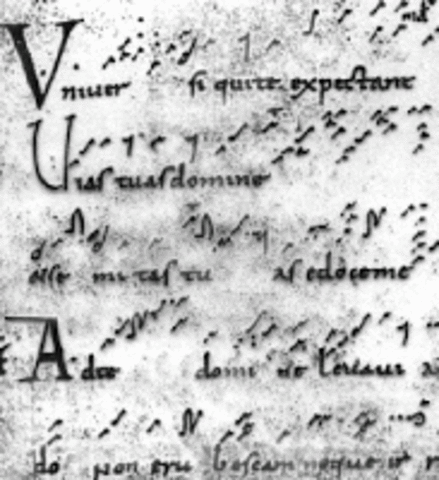 Vniuer si qui te expectant
Uias tuas domine
mi tas tu as edoceme
Adte domi ne leuaui
non eru bescam neque